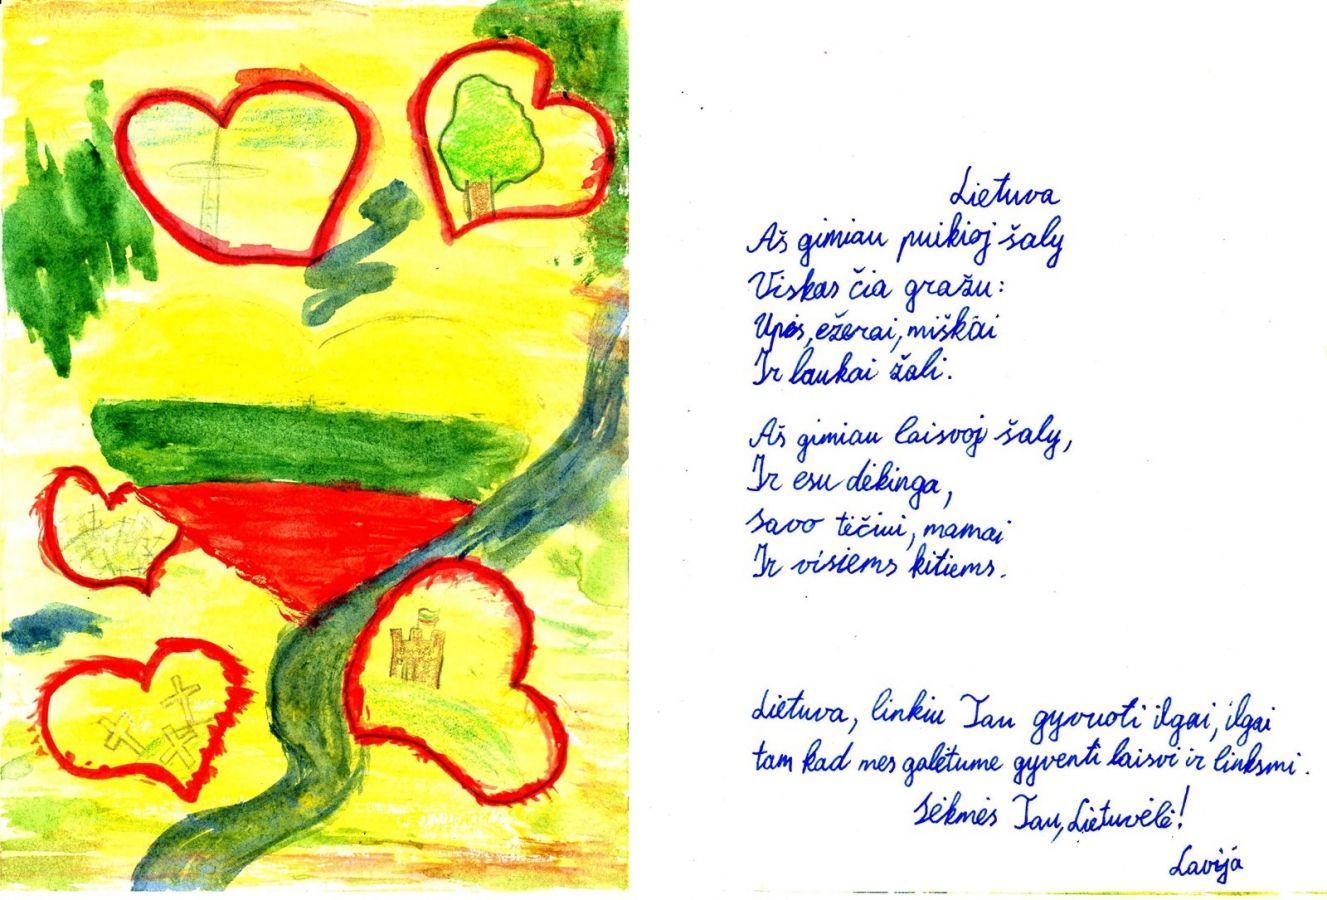 Lietuva
Aš gimiau puikioj šaly
Viskas čia gražu:
Upės, ežerai, miškai
Ir laukai žali.
Aš gimiau laisvoj šaly,
Ir esu dėkinga,
Savo tėčiui, mamai
Ir visiems kitiems.
Lietuva, linkiu Tau gyvuoti ilgai, ilgai
tam kad mes galėtume gyventi laisvi ir linksmi.
Sėkmės Tau, Lietuvėlė!
Lavija